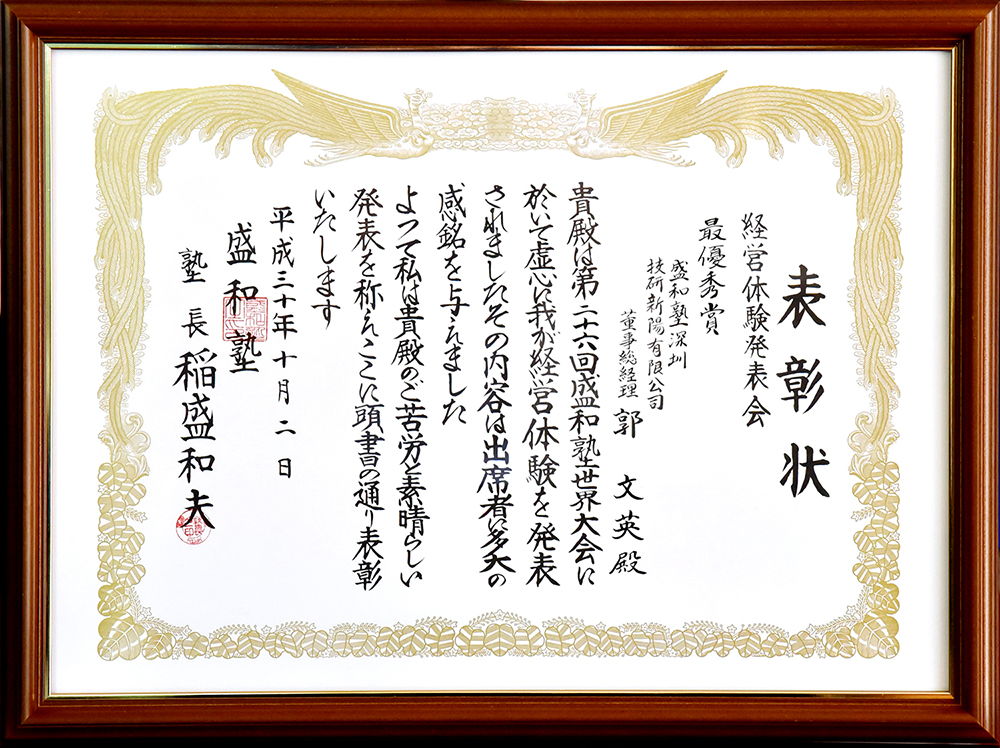 表彰状
経営体験発表会
最優秀賞
盛和塾深圳
技研新陽有限公司
董事総経理 郭文英殿
貴殿は第二十六回盛和塾世界大会に
於いて虚心に我が経営体験を発表
されましたその内容は出席者に多大の
感銘を与えました
よって私は貴殿のご苦労と素晴らしい
発表を称えここに頭書の通り表彰
いたします
平成三十年十月二日
盛和塾
塾長 稲盛和夫